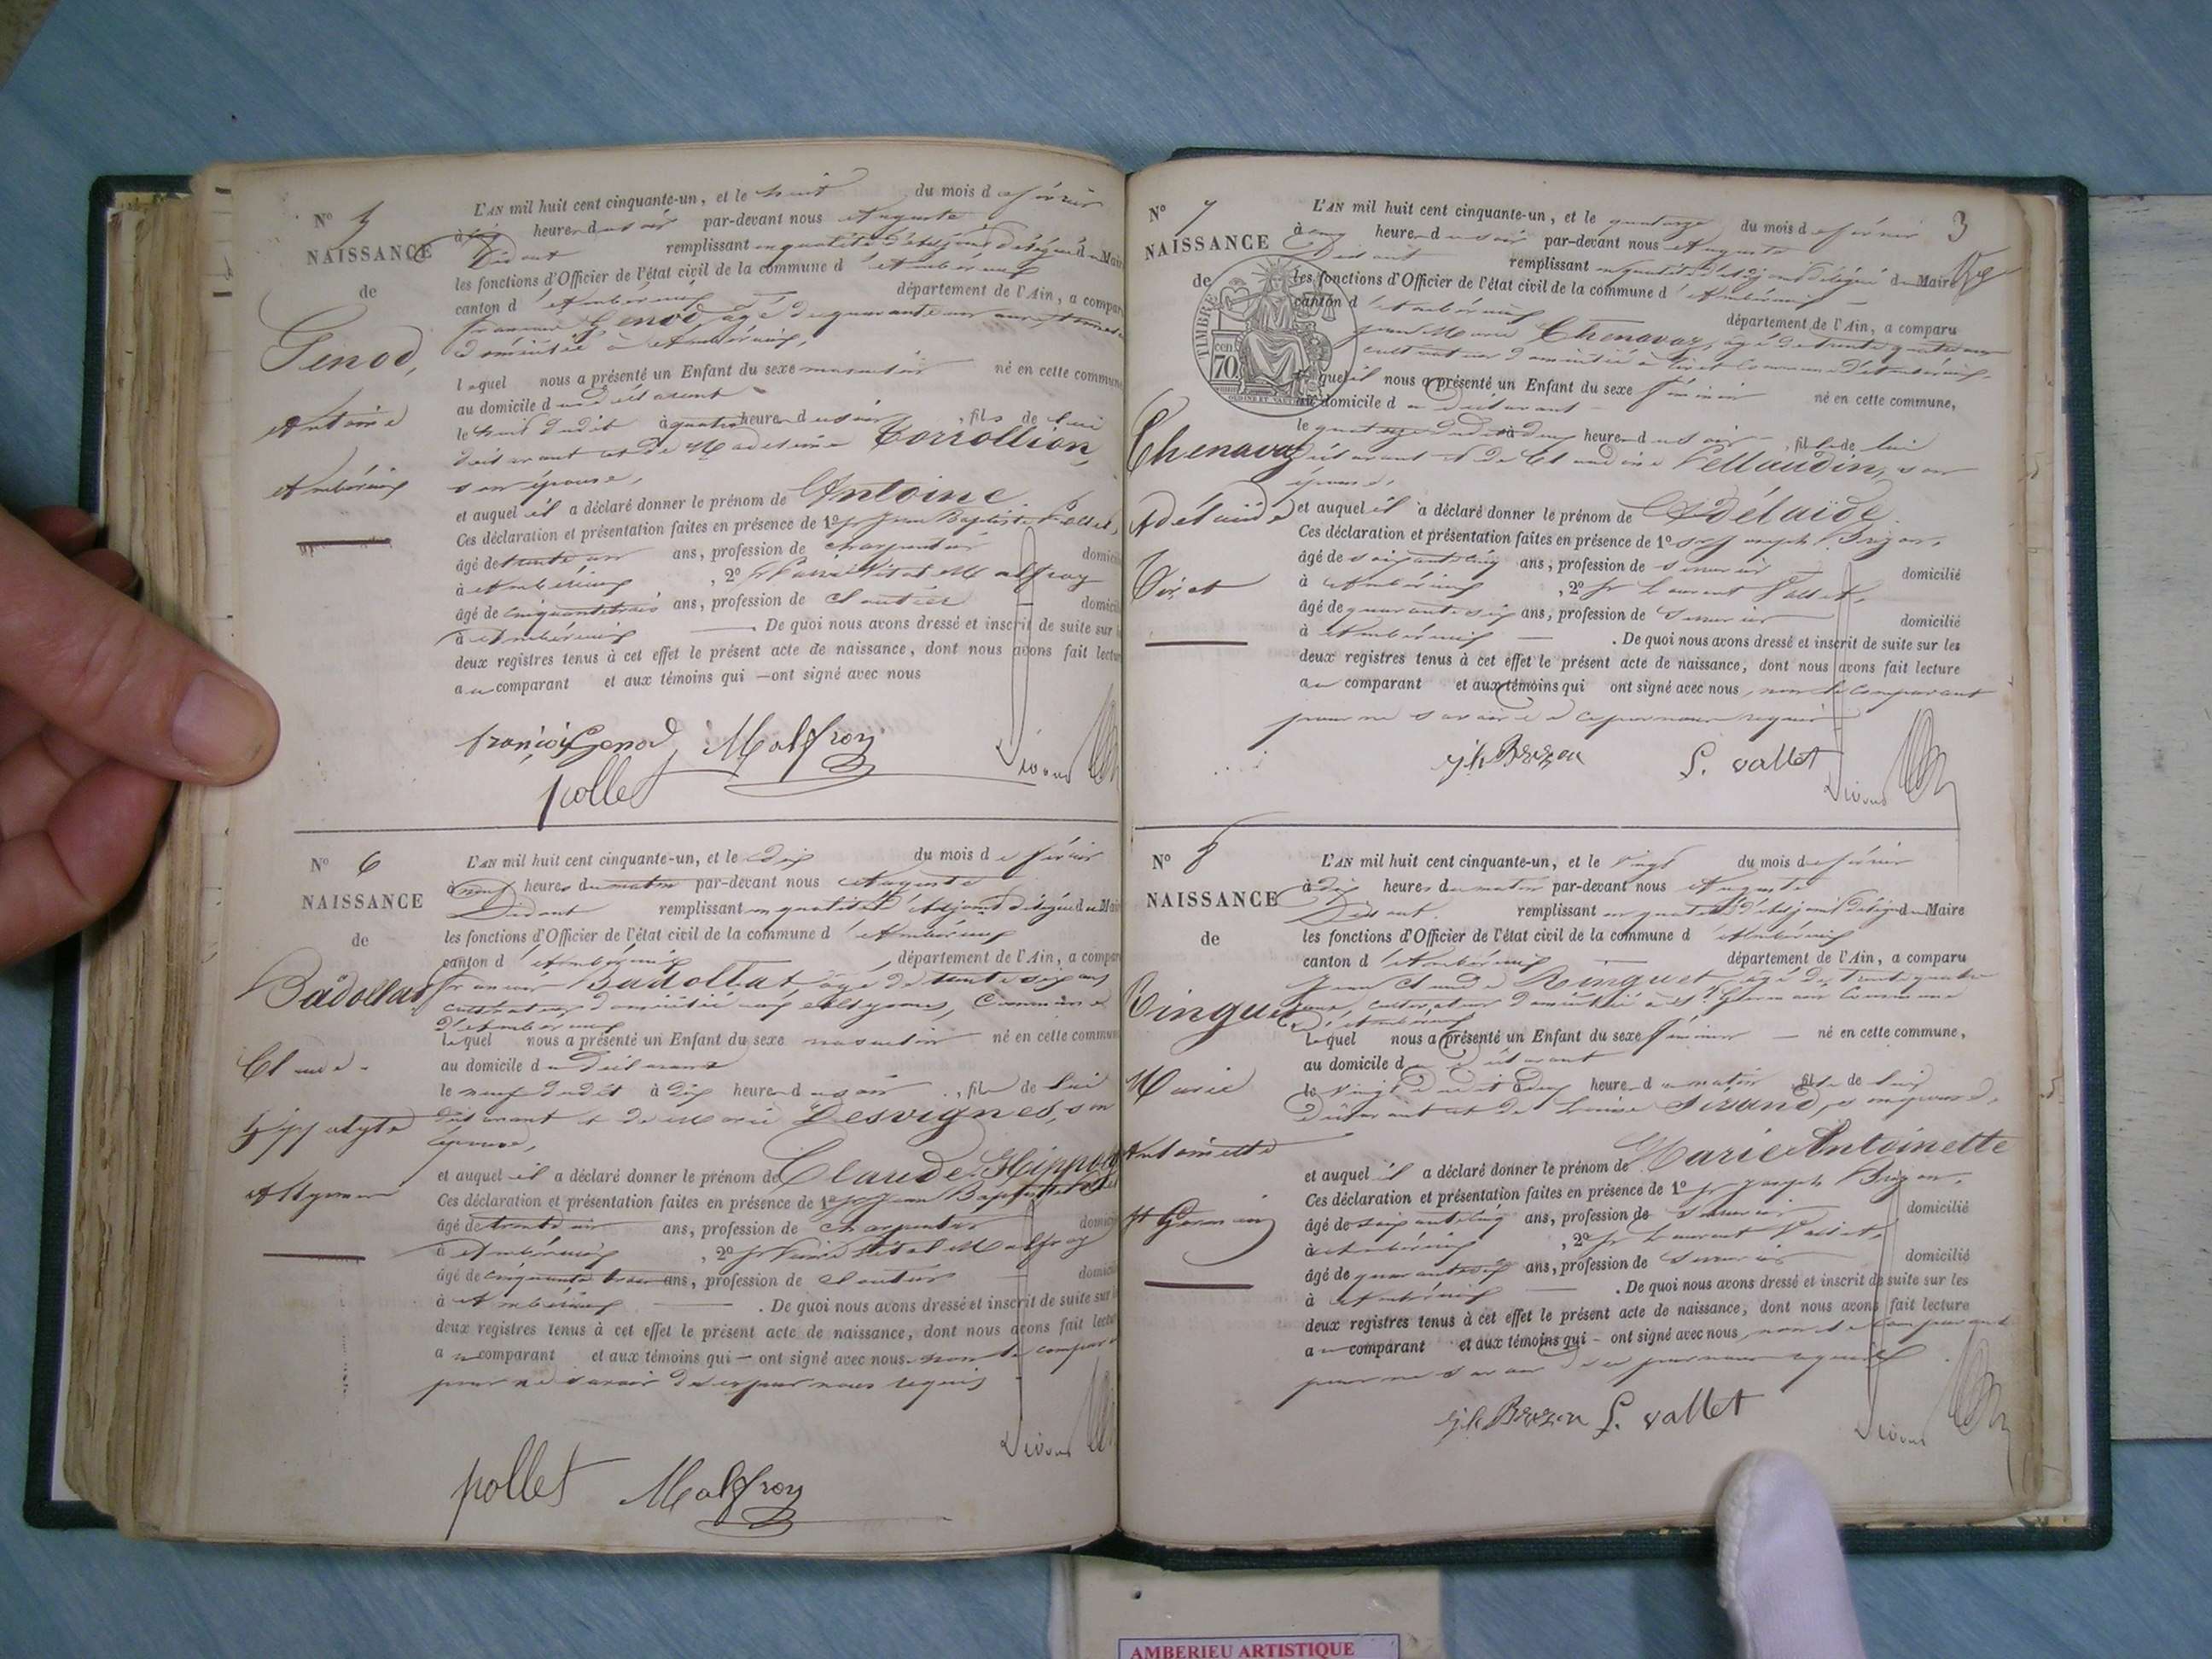 N° 5
NAISSANCE
de
Genod,
Antoine
Ambérieux
L'AN mil huit cent cinquante-un, et le huit du mois de février
à heures du soir par-devant nous Auguste
remplissant en qualité d'adjoint délégué du Mair
les fonctions d'Officier de l'état civil de la commune d'Ambérieux
canton d'Ambérieux département de l'Ain, a compar
Genod, âgé de quarante un ans
domicilié à Ambérieux,
lequel nous a présenté un Enfant du sexe masculin né en cette commune
au domicile du déclarant
le huit dudit à quatre heures du soir, fils de lui
déclarant et de Madeleine Corrollion,
son épouse,
et auquel il a déclaré donner le prénom de Antoine.
Ces déclaration et présentation faites en présence de 1° sr Jean Baptiste Pollet,
âgé de trente un ans, profession de charpentier domici
à Ambérieux, 2° sr Vital Malfroy
âgé de cinquante trois ans, profession de cloutier domici
à Ambérieux. De quoi nous avons dressé et inscrit de suite sur l
deux registres tenus à cet effet le présent acte de naissance, dont nous avons fait lectu
au comparant et aux témoins qui ont signé avec nous
françois Genod Malfroy
pollet
N° 6
NAISSANCE
de
Badollat
Claude
Hippolyte
L'AN mil huit cent cinquante-un, et le dix du mois de février
à neuf heures du matin par-devant nous Auguste
remplissant en qualité d'adjoint délégué du Mair
les fonctions d'Officier de l'état civil de la commune d'Ambérieux
canton d'Ambérieux département de l'Ain, a compar
Badollat âgé de trente six ans
cultivateur, domicilié aux Commune
d'Ambérieux
lequel nous a présenté un Enfant du sexe masculin né en cette commun
au domicile du déclarant
le neuf dudit à dix heures du soir, fils de lui
déclarant et de Marie Desvignes, son
épouse,
et auquel il a déclaré donner le prénom de Claude Hippoly
Ces déclaration et présentation faites en présence de 1° sr Jean Baptiste Pollet
âgé de trente un ans, profession de charpentier domici
à Ambérieux, 2° sr Vital Malfroy
âgé de cinquante trois ans, profession de cloutier domici
à Ambérieux. De quoi nous avons dressé et inscrit de suite sur l
deux registres tenus à cet effet le présent acte de naissance, dont nous avons fait lectu
au comparant et aux témoins qui ont signé avec nous non le compar
pour ne savoir de ce par nous requis
pollet Malfroy
N° 7
NAISSANCE
de
TIMBRE
cen.
70
Chenavaz
Adélaïde
Tiret
3
L'AN mil huit cent cinquante-un, et le quatorze du mois de février
à cinq heures du soir par-devant nous Auguste
remplissant en qualité d'adjoint délégué du Maire
les fonctions d'Officier de l'état civil de la commune d'Ambérieux
canton d'Ambérieux département de l'Ain, a comparu
Jean Marie Chenavaz, âgé de trente quatre ans
cultivateur domicilié à Tiret Commune d'Ambérieux,
lequel nous a présenté un Enfant du sexe féminin né en cette commune,
au domicile du déclarant
le quatorze dudit à deux heures du soir, fille de lui
déclarant et de Claudine Pellaudin, son
épouse,
et auquel il a déclaré donner le prénom de Adélaïde.
Ces déclaration et présentation faites en présence de 1° sr Joseph Brizon,
âgé de soixante cinq ans, profession de serrurier domicilié
à Ambérieux, 2° sr Laurent Vallet,
âgé de quarante six ans, profession de serrurier domicilié
à Ambérieux. De quoi nous avons dressé et inscrit de suite sur les
deux registres tenus à cet effet le présent acte de naissance, dont nous avons fait lecture
au comparant et aux témoins qui ont signé avec nous, non le comparant
pour ne savoir de ce par nous requis
L. vallet
N° 8
NAISSANCE
de
Ringuet
Marie
Antoinette
St Germain
L'AN mil huit cent cinquante-un, et le vingt du mois de février
à dix heures du matin par-devant nous Auguste
remplissant en qualité d'adjoint délégué du Maire
les fonctions d'Officier de l'état civil de la commune d'Ambérieux
canton d'Ambérieux département de l'Ain, a comparu
Jean Claude Ringuet, âgé de trente quatre
ans, cultivateur domicilié à St Germain Commune
d'Ambérieux
lequel nous a présenté un Enfant du sexe féminin né en cette commune,
au domicile du déclarant
le vingt dudit à deux heures du matin, fille de lui
déclarant et de Louise Sirand, son épouse,
et auquel il a déclaré donner le prénom de Marie Antoinette
Ces déclaration et présentation faites en présence de 1° sr Joseph Brizon,
âgé de soixante cinq ans, profession de serrurier domicilié
à Ambérieux, 2° sr Laurent Vallet,
âgé de quarante six ans, profession de serrurier domicilié
à Ambérieux. De quoi nous avons dressé et inscrit de suite sur les
deux registres tenus à cet effet le présent acte de naissance, dont nous avons fait lecture
au comparant et aux témoins qui ont signé avec nous, non le comparant
pour ne savoir de ce par nous requis
L. vallet
AMBERIEU ARTISTIQUE